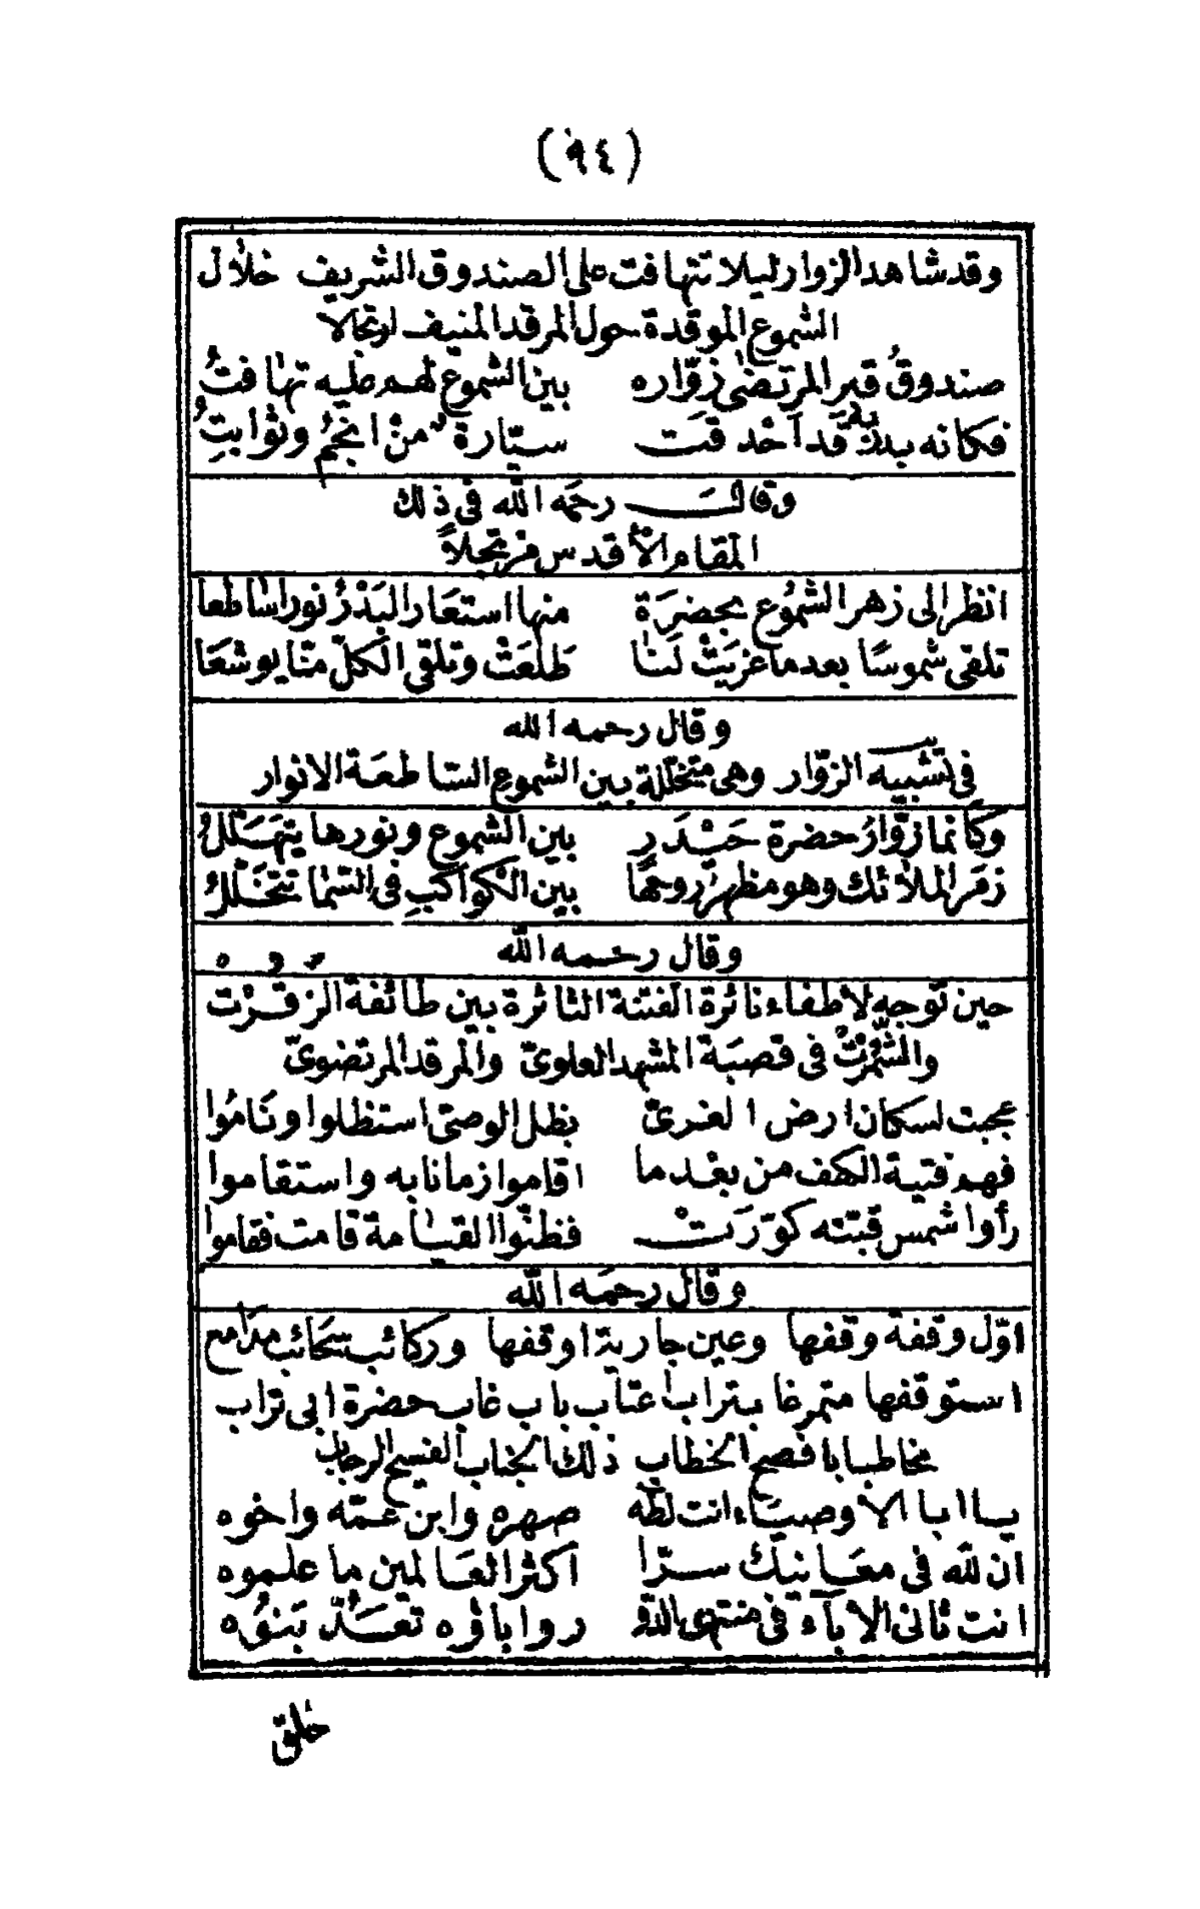 (٩٤)
وقد شاهد الزوار ليلا تتهافت على الصندوق الشريف خلال
الشموع الموقدة حول المرقد المنيف ارتجالا
صندوقُ قبر المرتضى زوّاره بين الشموع لهم عليه تهافتُ
فكانه بدر قد احْدقت سيّارة منْ انجُم وثوابتُ
وقال رحمه الله في ذلك
المقام الأقدس مرتجلاً
انظر الى زهر الشمُوع بحضرَة منها استعَار البَدْرُ نورا ساطعا
تلقى شموسًا بعد ما غربَتْ لَنا طَلعَتْ وتلقى الكلّ منّا يوشعَا
وقال رحمه الله
في تشبيه الزوّار وهى متخللة بين الشموع الساطعة الانوار
وكانما زوّارُ حضرة حَيْدَر بين الشموع ونورها يتهَلّلُ
زمَر الملائك وهو مظهرُ روحها بين الكواكب فى السّما تتخلّلُ
وقال رحمه الله
حين توجه لأطفاء نائرة الفتنة الثائرة بين طائفة الزقرْت
والشُمُرْتْ فى قصبَة المشهد العلوىّ والمرقد المرتضوىّ
عجبت لسكان ارض الغرىّ بظل الوصىّ استظلوا ونَامُوا
فهم فتية الكهف من بعْد ما اقاموا زمانا به واستقاموا
رأوا شمس قبّته كوّرَتْ فظنّوا القيامة قامت فقاموا
وقال رحمَه الله
اوّل وقفة وقفها وعين جارية اوقفها وركائب سحَائب مدَامع
استوقفها متمرغا بتراب اعتاب باب غاب حضرة ابى تراب
مخاطبا بافصح الخطاب ذلك الجناب الفسيح الرحاب
يا ابا الاوصيَاء انت لطٰه صهره وابن عمّه واخوه
ان لله فى معَانيك سرّا اكثر العَالمين ما علموه
انت ثانى الاباء فى منتهى الدَّو ر وابأوه تعَدّ بَنوُه
خلق